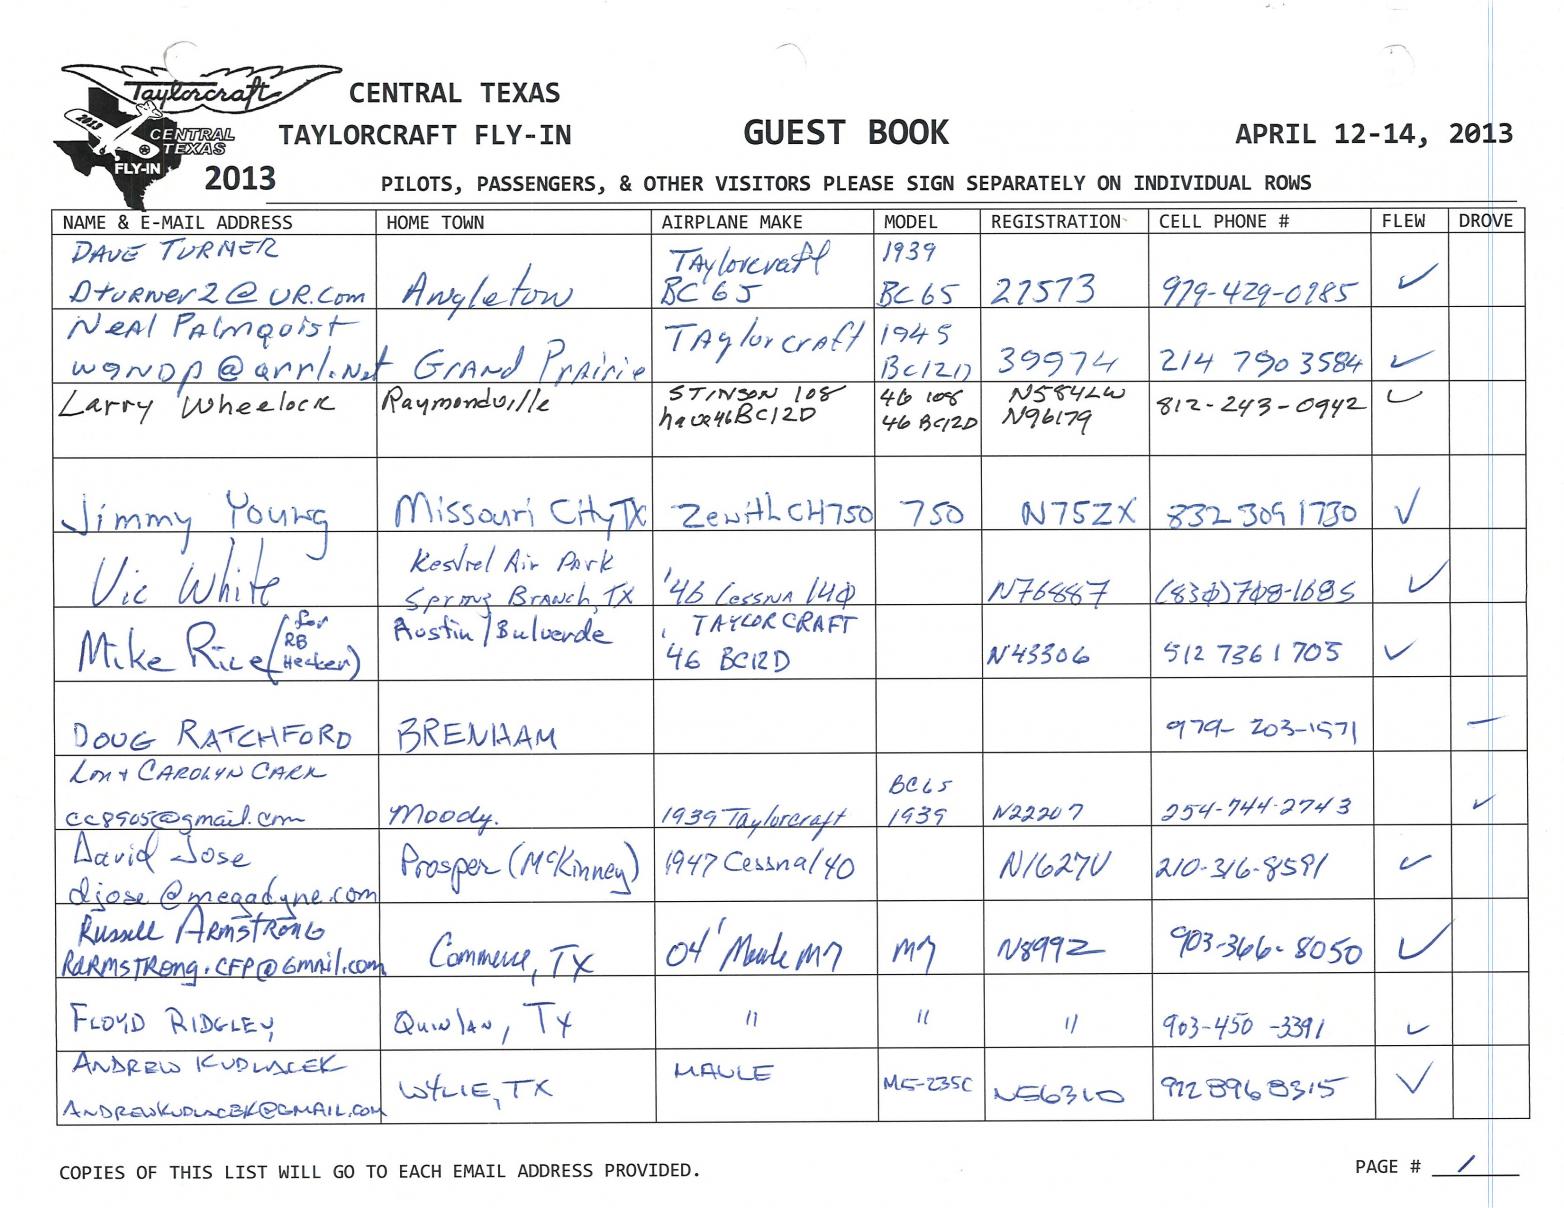 Taylorcraft
2013
CENTRAL
TEXAS
FLY-IN
CENTRAL TEXAS
TAYLORCRAFT FLY-IN
2013
GUEST BOOK
APRIL 12-14, 2013
PILOTS, PASSENGERS, & OTHER VISITORS PLEASE SIGN SEPARATELY ON INDIVIDUAL ROWS
NAME & E-MAIL ADDRESS HOME TOWN AIRPLANE MAKE MODEL REGISTRATION CELL PHONE # FLEW DROVE
DAVE TURNER Taylorcraft 1939
Dturner2@UR.com Angleton BC65 BC65 27573 979-429-0185 ✓
Neal Palmquist Taylorcraft 1945
w9NDP@arrl.Net Grand Prairie BC12D 39974 214 790 3584 ✓
Larry Wheelock Raymondville STINSON 108 46 108 N584LW 812-243-0942 ✓
have 46 BC12D 46 BC12D N96179
Jimmy Young Missouri City TX Zenith CH750 750 N75ZX 832 309 1730 ✓
Kestrel Air Park
Vic White Spring Branch, TX '46 Cessna 140 N76887 (830)708-1685 ✓
Mike Rice (for RB Hecker) Austin/Bulverde TAYLORCRAFT
'46 BC12D N43306 512 736 1705 ✓
DOUG RATCHFORD BRENHAM 979-203-1571 —
Lon + CAROLYN CARR BC65
cc8905@gmail.com Moody. 1939 Taylorcraft 1939 N22207 254-744-2743 ✓
David Jose Prosper (McKinney) 1947 Cessna 140 N1627V 210-316-8591 ✓
djose@megadyne.com
Russell ARMSTRONG
RDARMSTRONG.CFP@Gmail.com Commerce, TX 04' Maule M7 M7 N899Z 903-366-8050 ✓
FLOYD RIDGLEY, Quinlan, Tx " " " 903-450-3391 ✓
ANDREW KUDLACEK MAULE
ANDREWKUDLACEK@GMAIL.COM WYLIE, TX M5-235C N56310 972 896 8315 ✓
COPIES OF THIS LIST WILL GO TO EACH EMAIL ADDRESS PROVIDED.
PAGE # 1